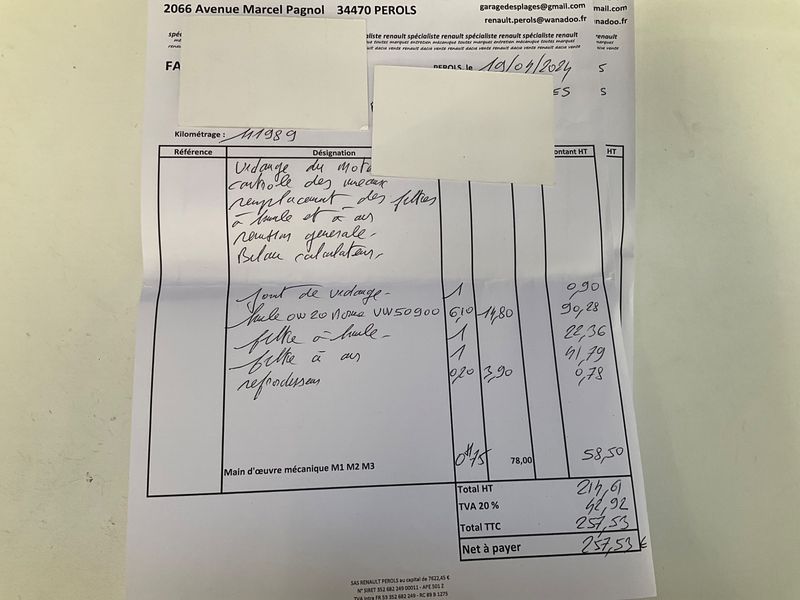 2066 Avenue Marcel Pagnol 34470 PEROLS
garagedesplages@gmail.com
mail.com
renault.perols@wanadoo.fr
nadoo.fr
spé
liste renault spécialiste renault spécialiste renault spécialiste renault
renault
FA
PEROLS, le 19/04/2024
S
ES
S
Kilométrage : 41989
Référence Désignation ontant HT HT
Vidange du Mot
contrôle des niveaux
remplacement des filtres
à huile et à air
revision generale.
Bilan calculateur.
Joint de vidange 1 0,90
huile 0W20 Norme VW50900 6,10 14,80 90,28
filtre à huile 1 22,36
filtre à air 1 41,79
refroidissement 0,20 3,90 0,78
Main d'œuvre mécanique M1 M2 M3 0H75 78,00 58,50
Total HT 214,61
TVA 20 % 42,92
Total TTC 257,53
Net à payer 257,53 €
SAS RENAULT PEROLS au capital de 7622,45 €
N° SIRET 352 682 249 00011 - APE 501 Z
TVA Intra FR 59 352 682 249 - RC 89 B 1275